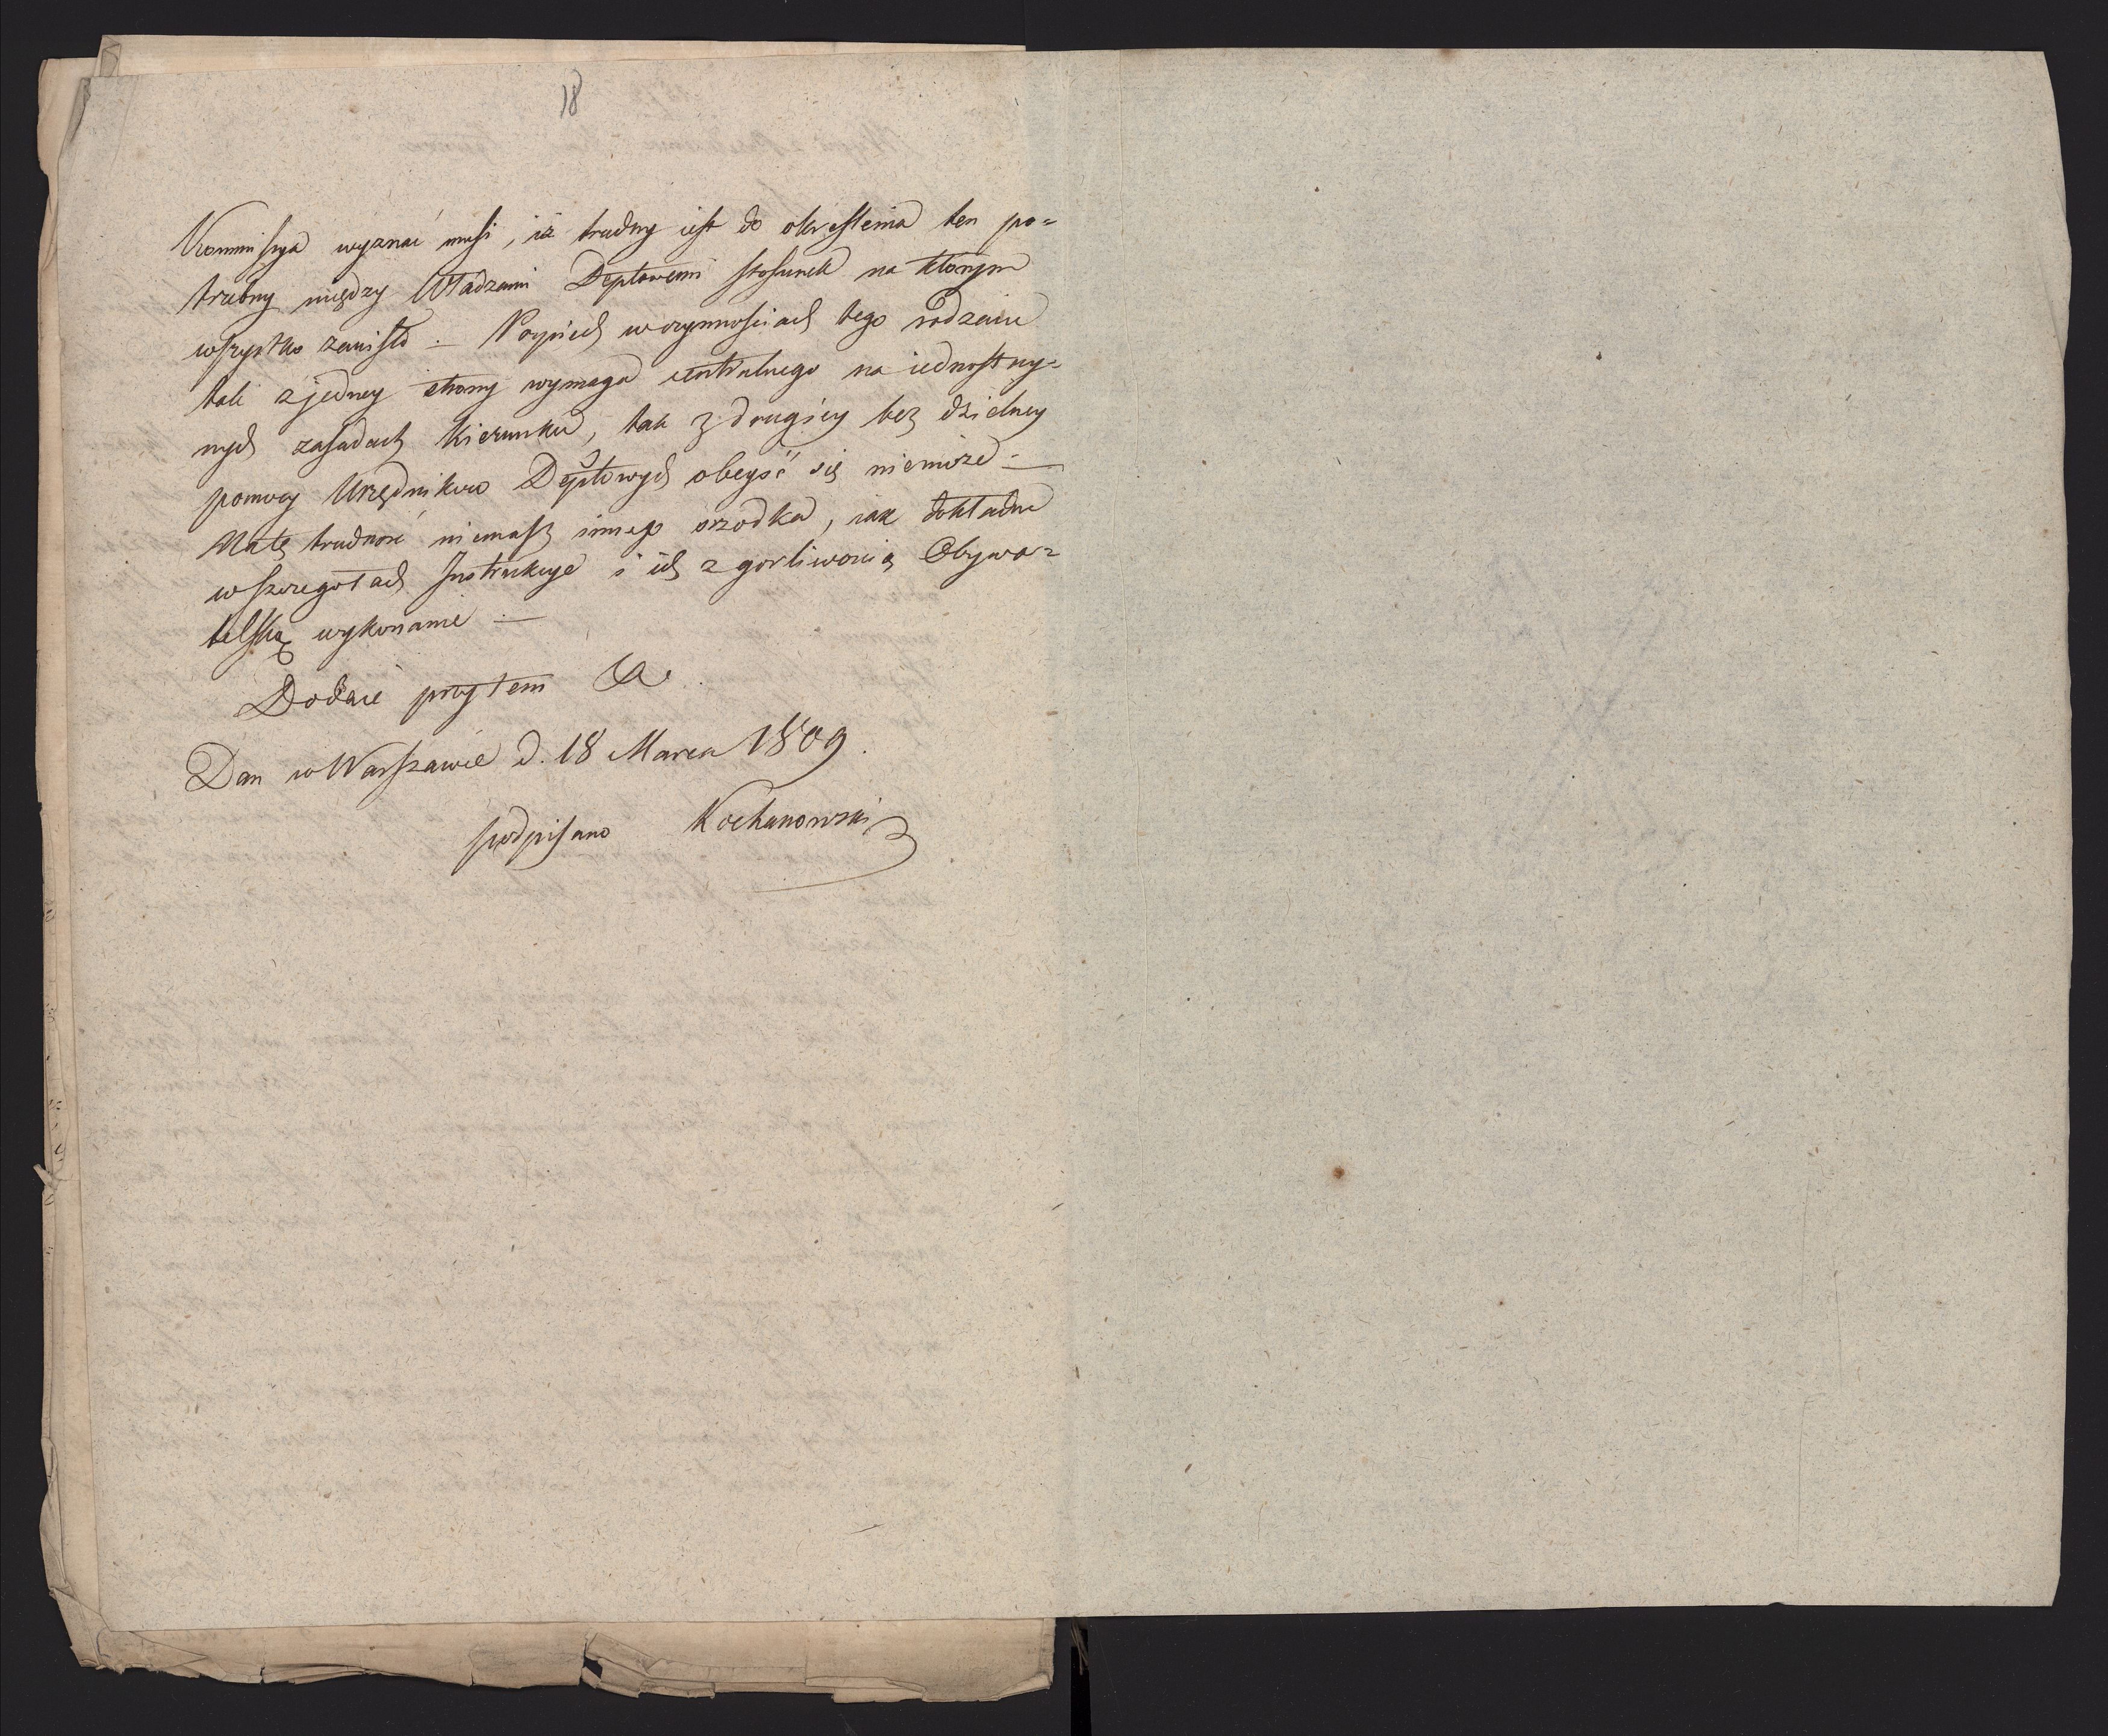 18
Kommissya wyznać musi, iż trudny iest do okreslenia ten po=
trzebny między Władzami Deptowemi stosunek na którym
wszystko zawisło. — Pospiech w czynnościach tego rodzaiu
tak z jedney strony wymaga centralnego na iednostay=
nych zasadach kierunku, tak z drugiey bez dzielney
pomocy Urzędników Deptowych obeyść się niemoże. —
Na tę trudność niemasz innego srzodka, iak dokładne
w szczegołach Instrukcye i ich z gorliwością Obywa=
telską wykonanie. —
Dodaie przytem &c.
Dan w Warszawie d. 18 Marca 1809.
podpisano Kochanowski